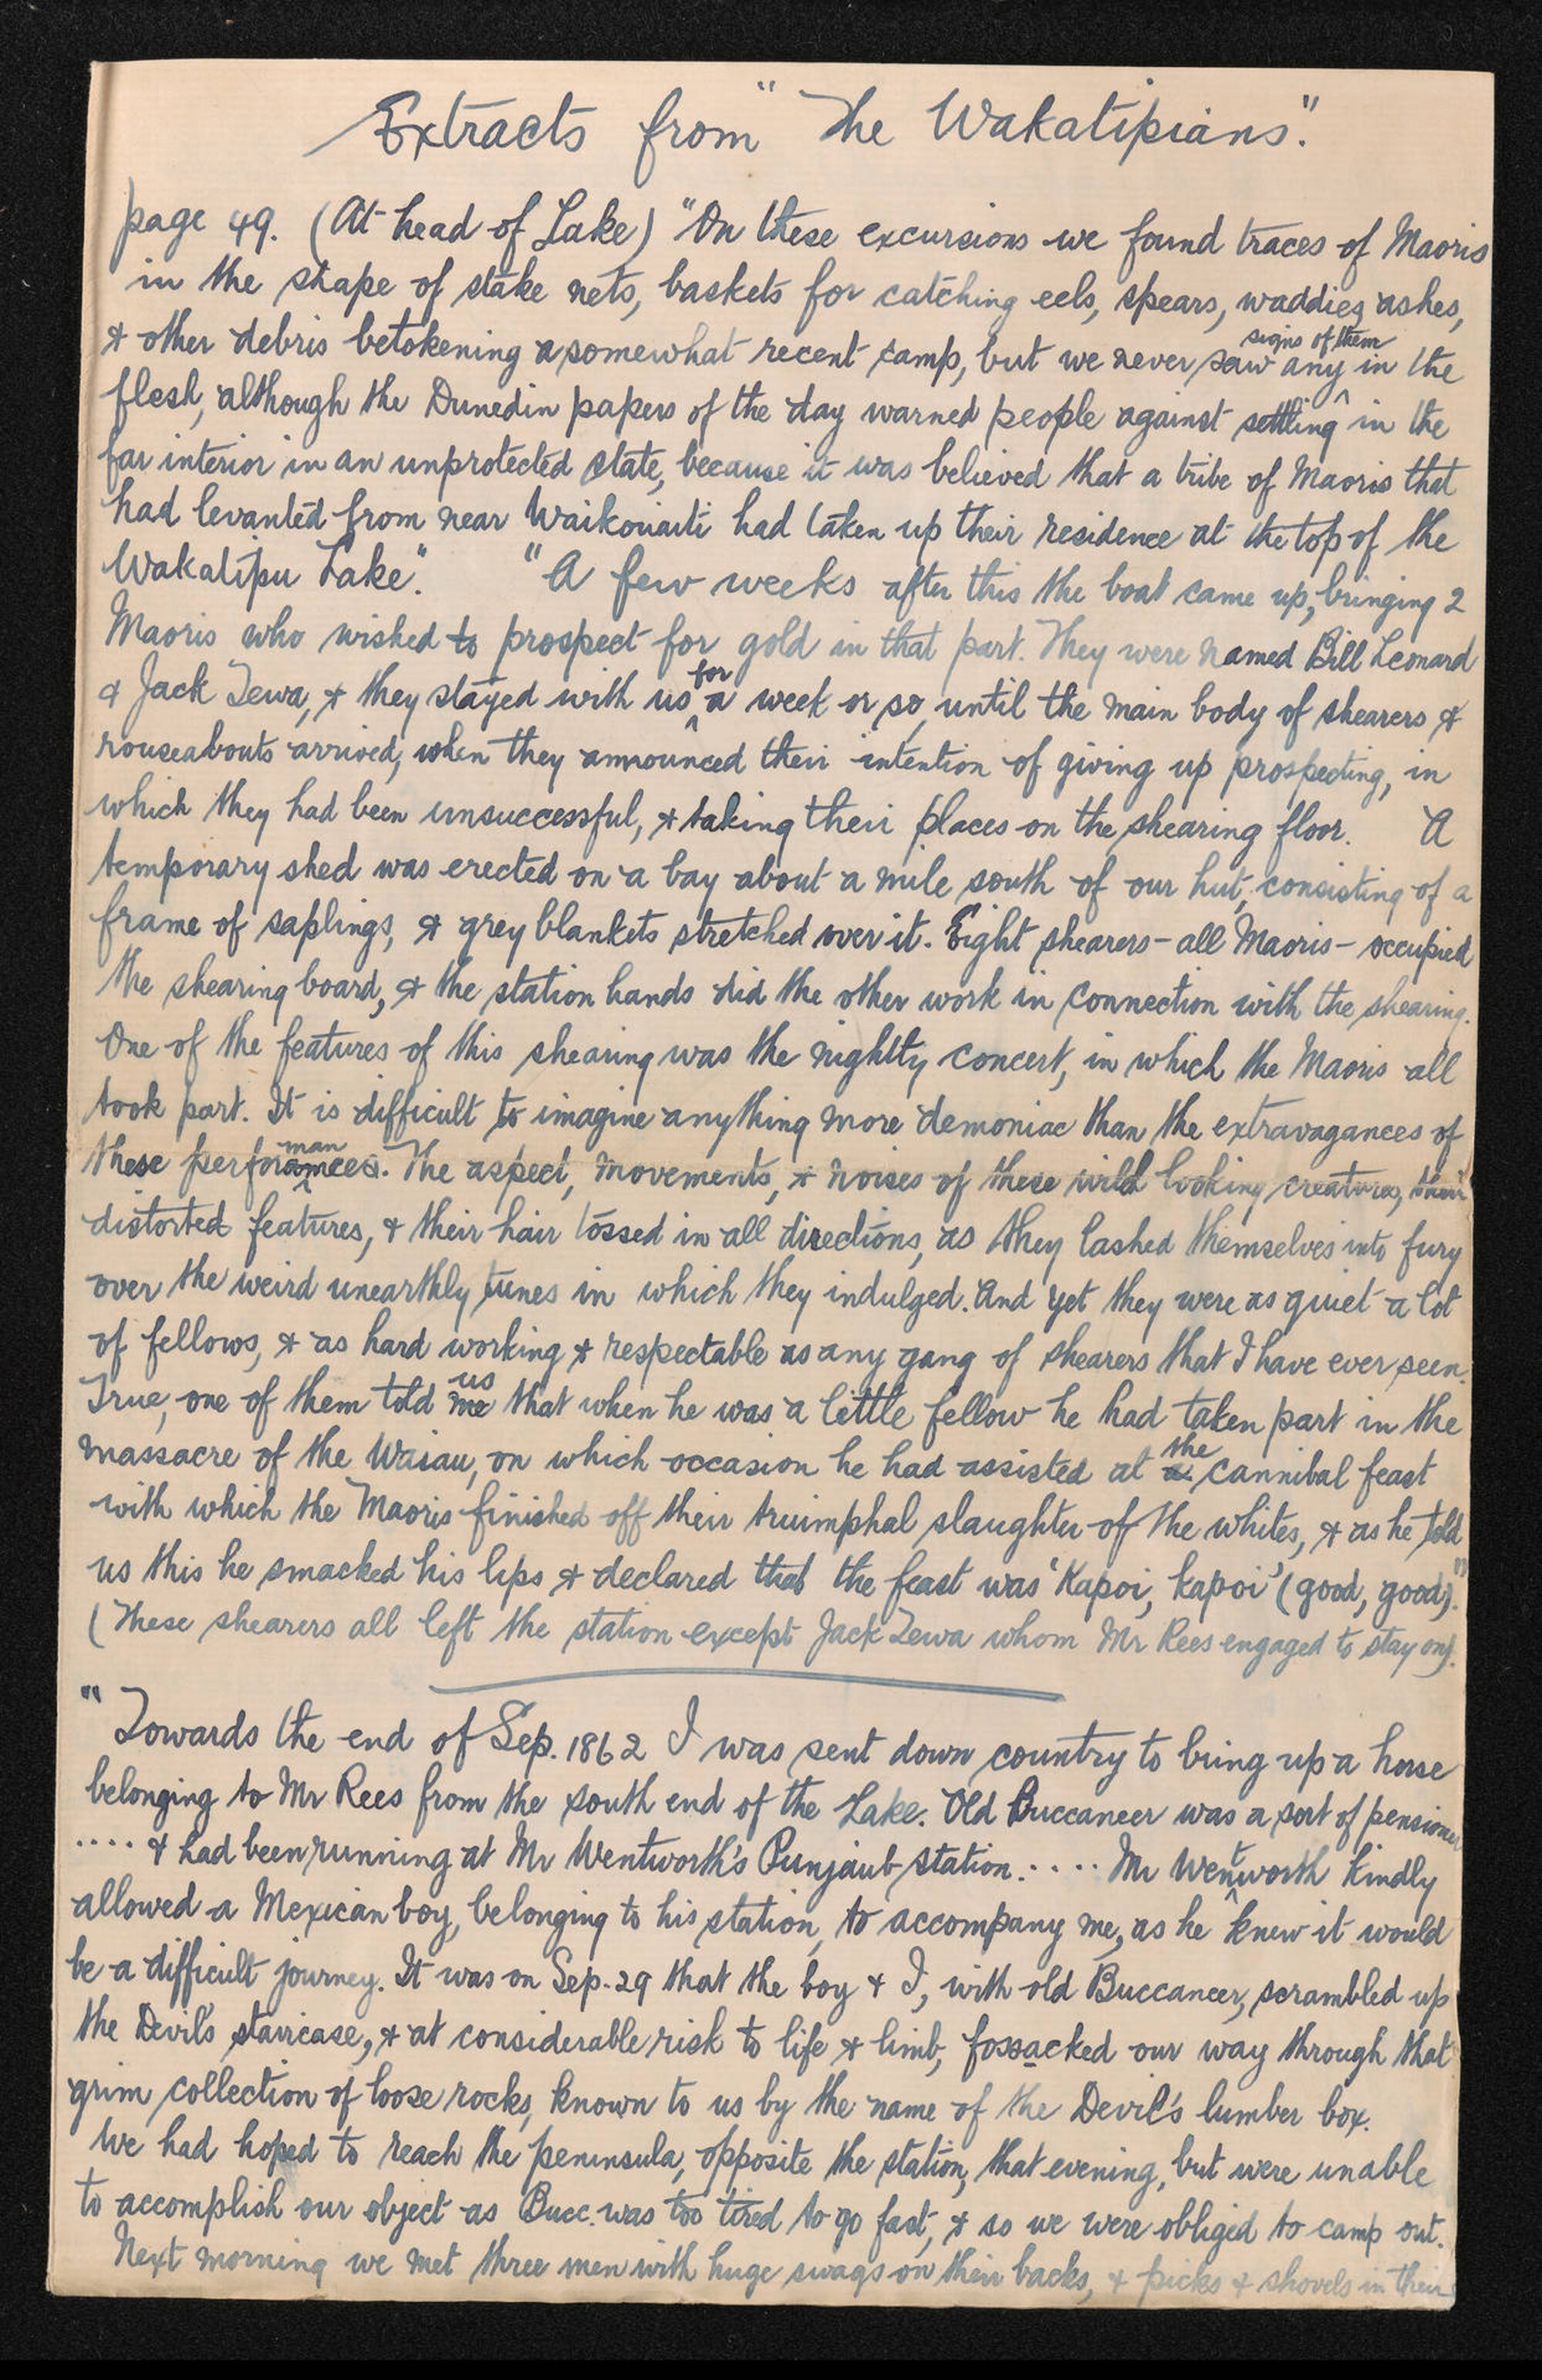 Extracts from "The Wakatipians".
page 49. (At head of Lake) "On these excursions we found traces of Maoris
in the shape of stake nets, baskets for catching eels, spears, waddies, ashes,
& other debris betokening a somewhat recent camp, but we never saw any signs of them in the
flesh, although the Dunedin papers of the day warned people against settling in the
far interior in an unprotected state, because it was believed that a tribe of Maoris that
had levanted from near Waikouaiti had taken up their residence at the top of the
Wakatipu Lake". "A few weeks after this the boat came up, bringing 2
Maoris who wished to prospect for gold in that part. They were named Bill Leonard
& Jack Tewa, & they stayed with us for a week or so, until the main body of shearers &
rouseabouts arrived, when they announced their intention of giving up prospecting, in
which they had been unsuccessful, & taking their places on the shearing floor. A
temporary shed was erected on a bay about a mile south of our hut, consisting of a
frame of saplings, & grey blankets stretched over it. Eight shearers - all Maoris - occupied
the shearing board, & the station hands did the other work in connection with the shearing.
One of the features of this shearing was the nightly concert, in which the Maoris all
took part. It is difficult to imagine anything more demoniac than the extravagances of
these performances. The aspect, movements, & noises of these wild looking creatures, their
distorted features, & their hair tossed in all directions, as they lashed themselves into fury
over the weird unearthly tunes in which they indulged. And yet they were as quiet a lot
of fellows, & as hard working & respectable as any gang of shearers that I have ever seen.
True, one of them told me us that when he was a little fellow he had taken part in the
massacre of the Waiau, on which occasion he had assisted at a the cannibal feast
with which the Maoris finished off their truimphal slaughter of the whites, & as he told
us this he smacked his lips & declared that the feast was 'Kapoi, kapoi' (good, good)."
(These shearers all left the station except Jack Tewa whom Mr Rees engaged to stay on).
"Towards the end of Sep. 1862 I was sent down country to bring up a horse
belonging to Mr Rees from the south end of the Lake. Old Buccaneer was a sort of pensioner
.... & had been running at Mr Wentworth's Punjaub station..... Mr Wentworth kindly
allowed a Mexican boy, belonging to his station, to accompany me, as he knew it would
be a difficult journey. It was on Sep. 29 that the boy & I, with old Buccaneer, scrambled up
the Devil's staircase, & at considerable risk to life & limb, fossacked our way through that
grim collection of loose rocks, known to us by the name of the Devil's lumber box.
We had hoped to reach the peninsula, opposite the station, that evening, but were unable
to accomplish our object as Bucc. was too tired to go fast, & so we were obliged to camp out.
Next morning we met three men with huge swags on their backs, & picks & shovels in their